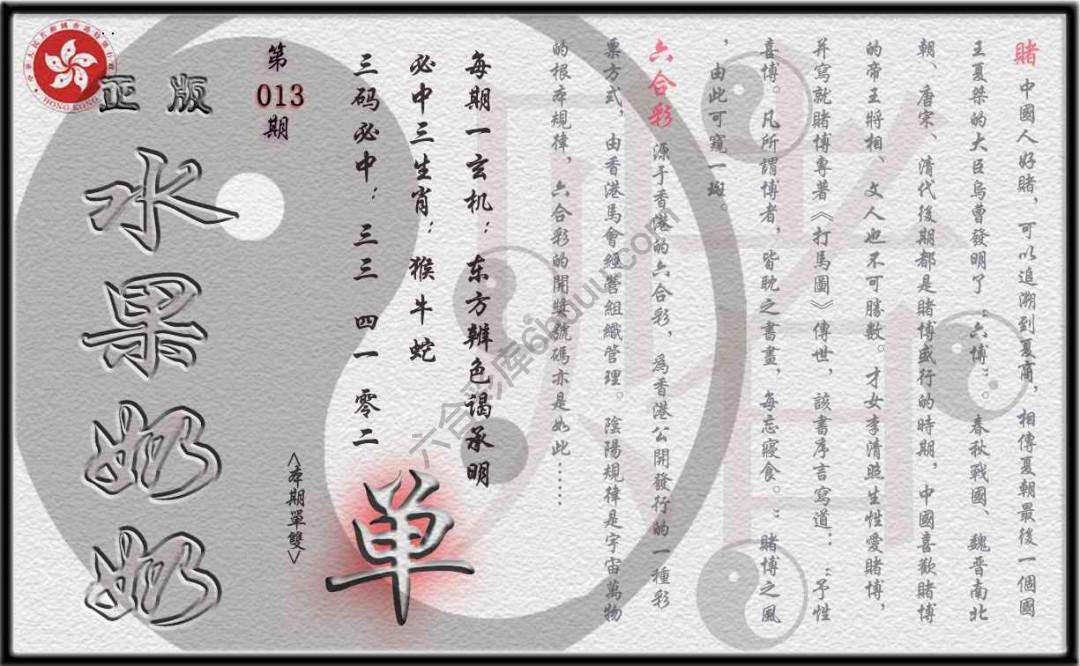 賭 中國人好賭，可以追溯到夏商，相傳夏朝最後一個國
王夏桀的大臣烏曹發明了：六博：。春秋戰國、魏晋南北
朝、唐宋、清代後期都是賭博盛行的時期，中國喜歡賭博
的帝王將相、文人也不可勝數。才女李清照生性愛賭博，
并寫就賭博專著《打馬圖》傳世，該書序言寫道：：予性
喜博。凡所謂博者，皆耽之書畫，每忘寢食。：賭博之風
，由此可窺一斑。
六合彩 源于香港的六合彩，為香港公開發行的一種彩
票方式，由香港馬會經營組織管理。陰陽規律是宇宙萬物
的根本規律，六合彩的開獎號碼亦是如此……
每期一玄机：东方辨色谒承明
必中三生肖：猴牛蛇
三码必中：三三 四一 零二
单
<本期單雙>
第
013
期
正版
水果奶奶
HONG KONG
六合彩库6huuu.com